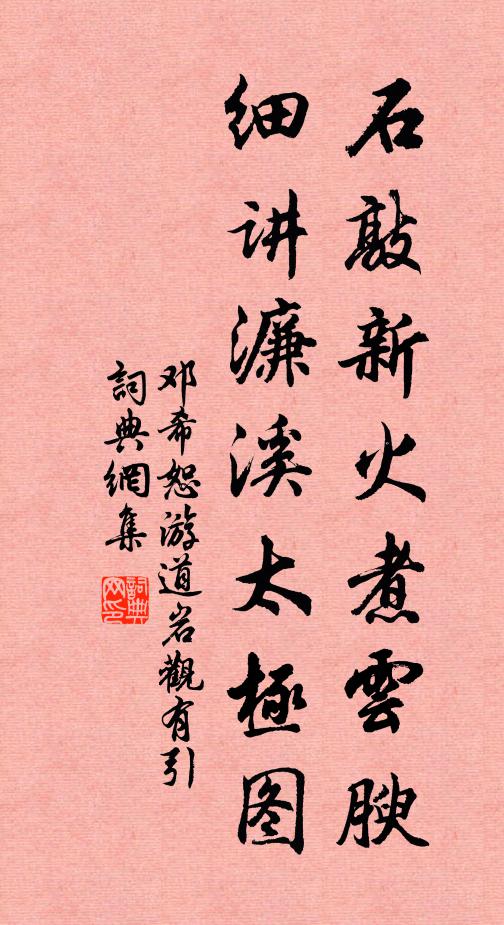 石敲新火煮雲腴
细讲濂溪太極图
邓希恕游道岩觀有引
詞典網集
詞典
网印